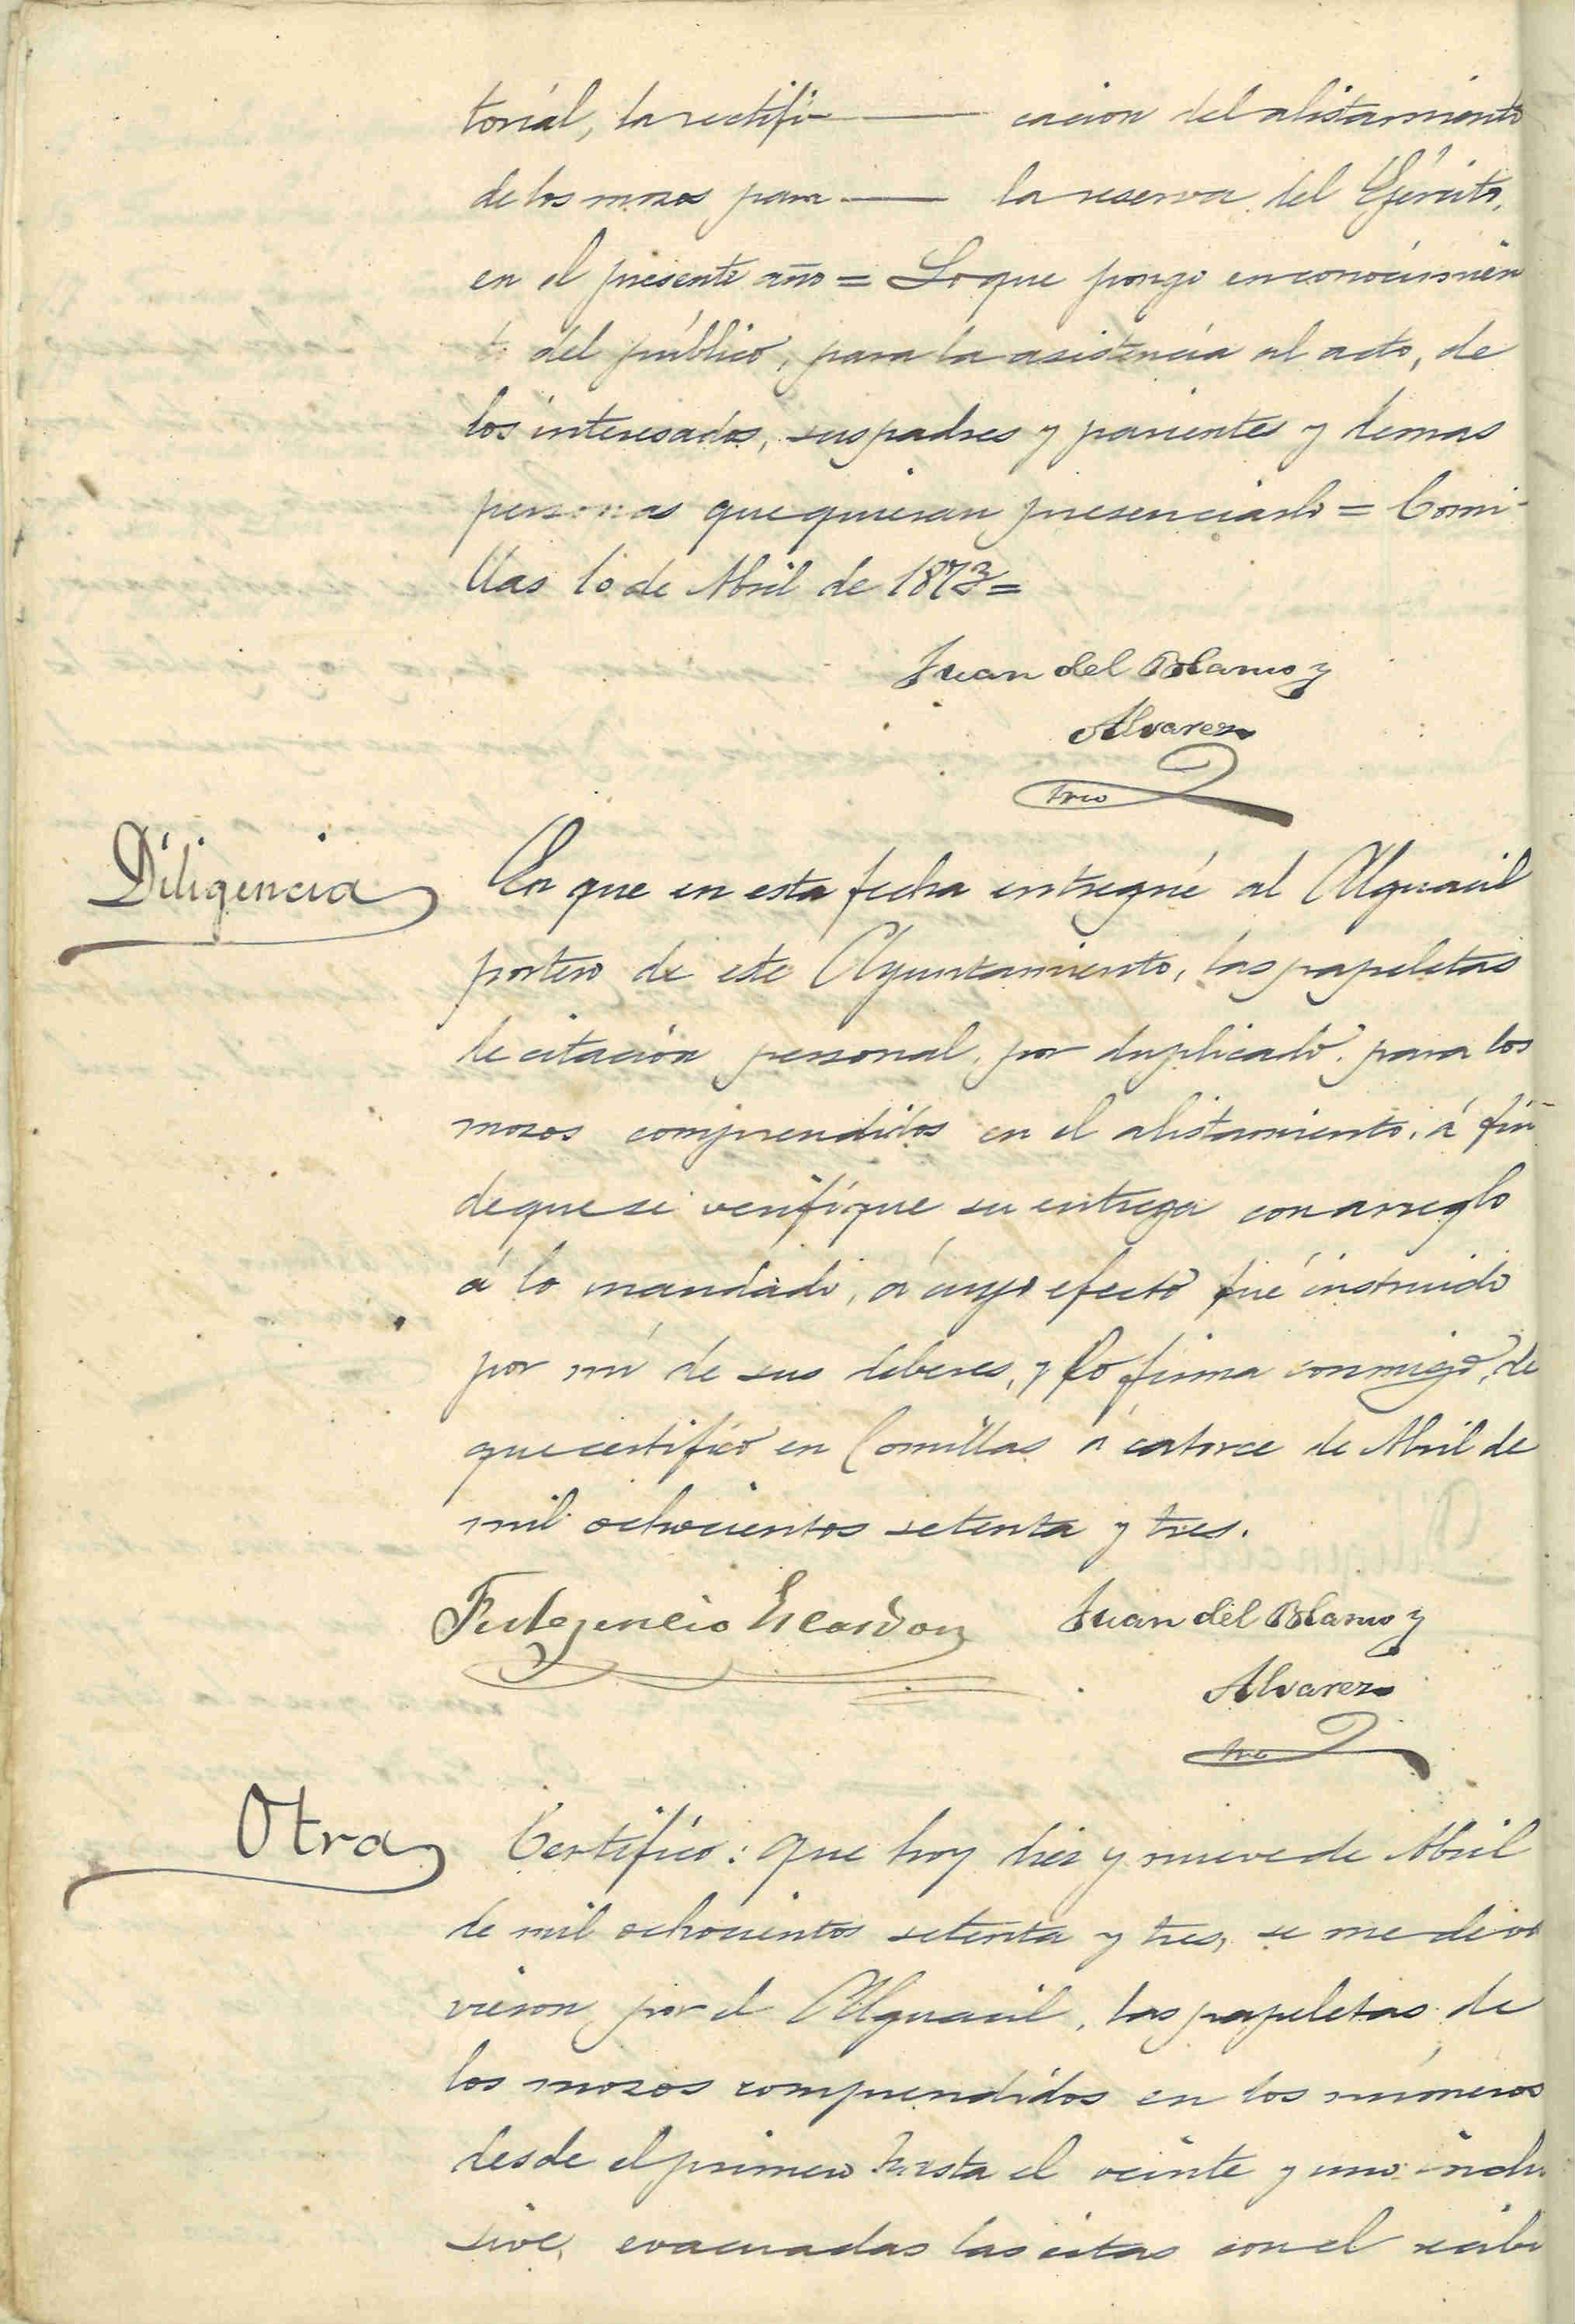 torial, la rectifi- cacion del alistamiento
de los mozos para la reserva del Ejército,
en el presente año = Lo que pongo en conocimien
to del público, para la asistencia al acto, de
los interesados, sus padres y parientes y demas
personas que quieran presenciarlo = Comi-
llas 10 de Abril de 1873 =
Juan del Blanco y
Alvarez
Srio
Diligencia
En que en esta fecha entregué al Alguacil
portero de este Ayuntamiento, las papeletas
de citacion personal, por duplicado, para los
mozos comprendidos en el alistamiento, á fin
de que se verifique su entrega con arreglo
á lo mandado, á cuyo efecto fué instruido
por mí de sus deberes, y lo firma conmigo, de
que certifico en Comillas á catorce de Abril de
mil ochocientos setenta y tres.
Fulgencio Escardon Juan del Blanco y
Alvarez
Srio
Otra
Certifico: que hoy diez y nueve de Abril
de mil ochocientos setenta y tres, se me devol
vieron por el Alguacil, las papeletas de
los mozos comprendidos en los números
desde el primero hasta el veinte y uno inclu
sive, evacuadas las citas con el recibi